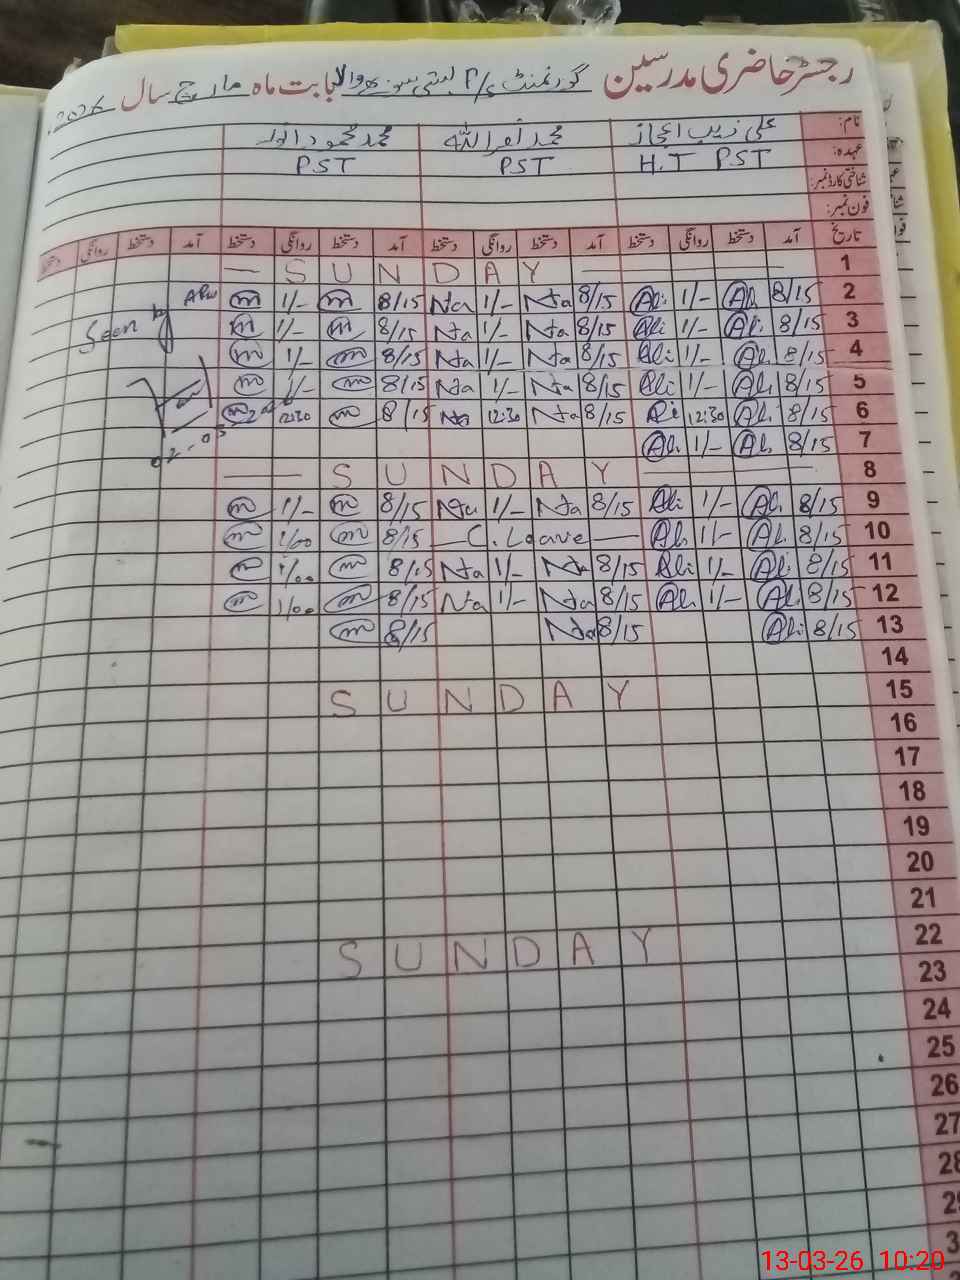 رجسٹر حاضری مدرسین گورنمنٹ P/S بستی سونھارا والا بابت ماہ مارچ سال 2026
نام: علی زیب اعجاز محمد نصراللہ محمد محمود انور
عہدہ: H.T PST PST PST
شناختی کارڈ نمبر:
فون نمبر:
تاریخ آمد دستخط روانگی دستخط آمد دستخط روانگی دستخط آمد دستخط روانگی دستخط آمد دستخط روانگی دستخط
— SUNDAY — 1
m 1/- m 8/15 Na 1/- Na 8/15 Ali 1/- Ali 8/15 2
Seen by
m 1/- m 8/15 Na 1/- Na 8/15 Ali 1/- Ali 8/15 3
m 1/- m 8/15 Na 1/- Na 8/15 Ali 1/- Ali 8/15 4
m 1/- m 8/15 Na 1/- Na 8/15 Ali 1/- Ali 8/15 5
m 12:30 m 8/15 Na 12:30 Na 8/15 Ali 12:30 Ali 8/15 6
02-03
Ali 1/- Ali 8/15 7
— SUNDAY — 8
m 1/- m 8/15 Na 1/- Na 8/15 Ali 1/- Ali 8/15 9
m 1/00 m 8/15 — C. Leave — Ali 1/- Ali 8/15 10
m 1/00 m 8/15 Na 1/- Na 8/15 Ali 1/- Ali 8/15 11
m 1/00 m 8/15 Na 1/- Na 8/15 Ali 1/- Ali 8/15 12
m 8/15 Na 8/15 Ali 8/15 13
14
SUNDAY 15
16
17
18
19
20
21
SUNDAY 22
23
24
25
26
27
28
13-03-26 10:20